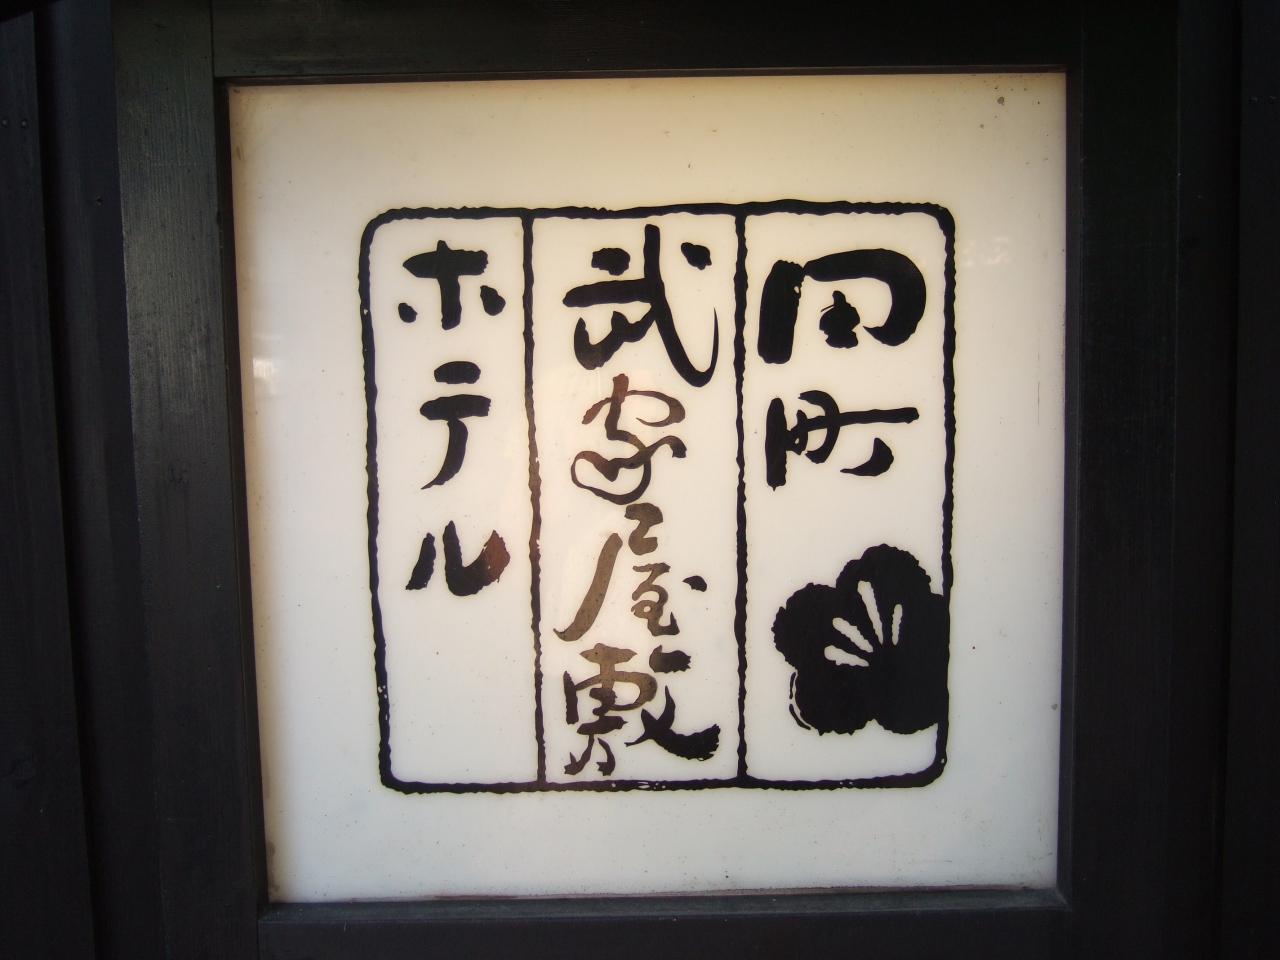 田町
武家屋敷
ホテル